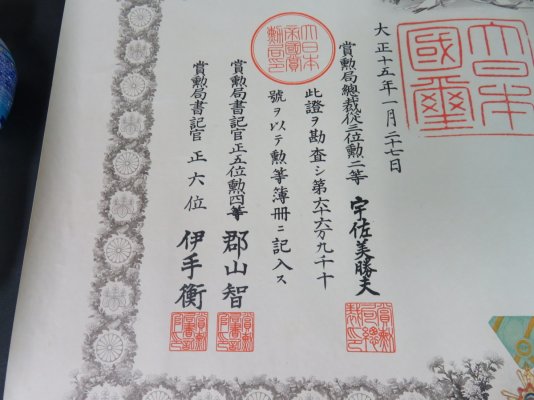 大日本國璽
大正十五年一月二十七日
賞勲局總裁從三位勲二等 宇佐美勝夫
此證ヲ勘査シ第六十六万九千十
號ヲ以テ勲等簿冊ニ記入ス
賞勲局書記官正五位勲四等 郡山智
賞勲局書記官 正六位 伊手衡
大日本帝國賞勲局印